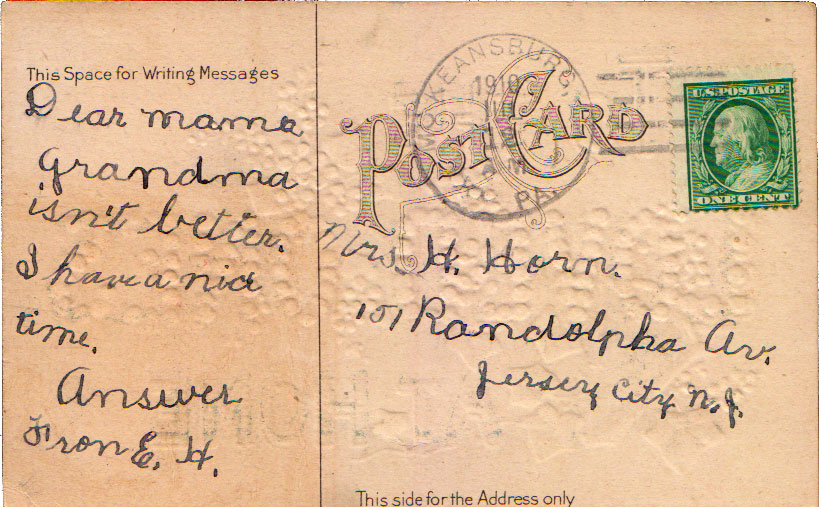 This Space for Writing Messages
Dear mama
Grandma
isn't better.
I have a nice
time.
Answer
From E. H.
POST CARD
KEANSBURG
1910
PA
U.S. POSTAGE
ONE CENT
Mrs. H. Horn.
101 Randolpha Av.
Jersey City N.J.
This side for the Address only